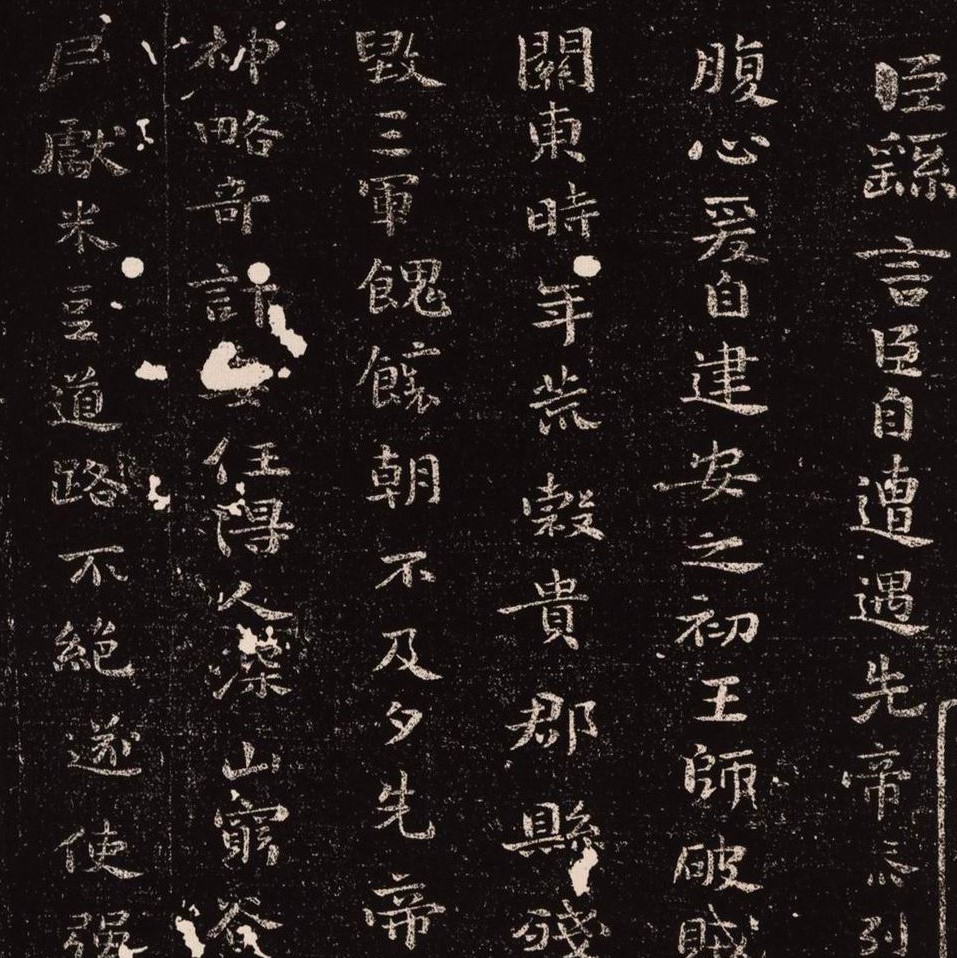 臣繇言臣自遭遇先帝忝列
腹心爰自建安之初王師破賊
關東時年荒穀貴郡縣殘
毀三軍餽饟朝不及夕先帝
神略奇計委任得人深山窮谷
戶獻米豆道路不絕遂使強